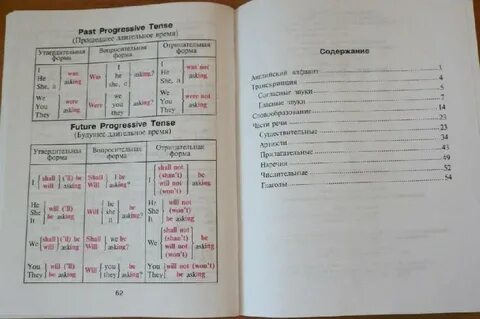 Past Progressive Tense
(Прошедшее длительное время)
Утвердительная форма
Вопросительная форма
Отрицательная форма
I He She, it was asking
Was I he she, it asking?
I He She, it was not asking
We You They were asking
Were we you they asking?
We You They were not asking
Future Progressive Tense
(Будущее длительное время)
Утвердительная форма
Вопросительная форма
Отрицательная форма
I shall ('ll) will be asking
Shall Will I be asking?
I shall not (shan't) will not (won't) be asking
He She It will ('ll) be asking
Will he she it be asking?
He She It will not (won't) be asking
We shall ('ll) will be asking
Shall Will we be asking?
We shall not (shan't) will not (won't) be asking
You They will ('ll) be asking
Will you they be asking?
You They will not (won't) be asking
62
Содержание
Английский алфавит 1
Транскрипция 4
Согласные звуки 5
Гласные звуки 7
Словообразование 14
Части речи 23
Существительные 23
Артикли 34
Прилагательные 43
Наречия 49
Числительные 52
Глаголы 54